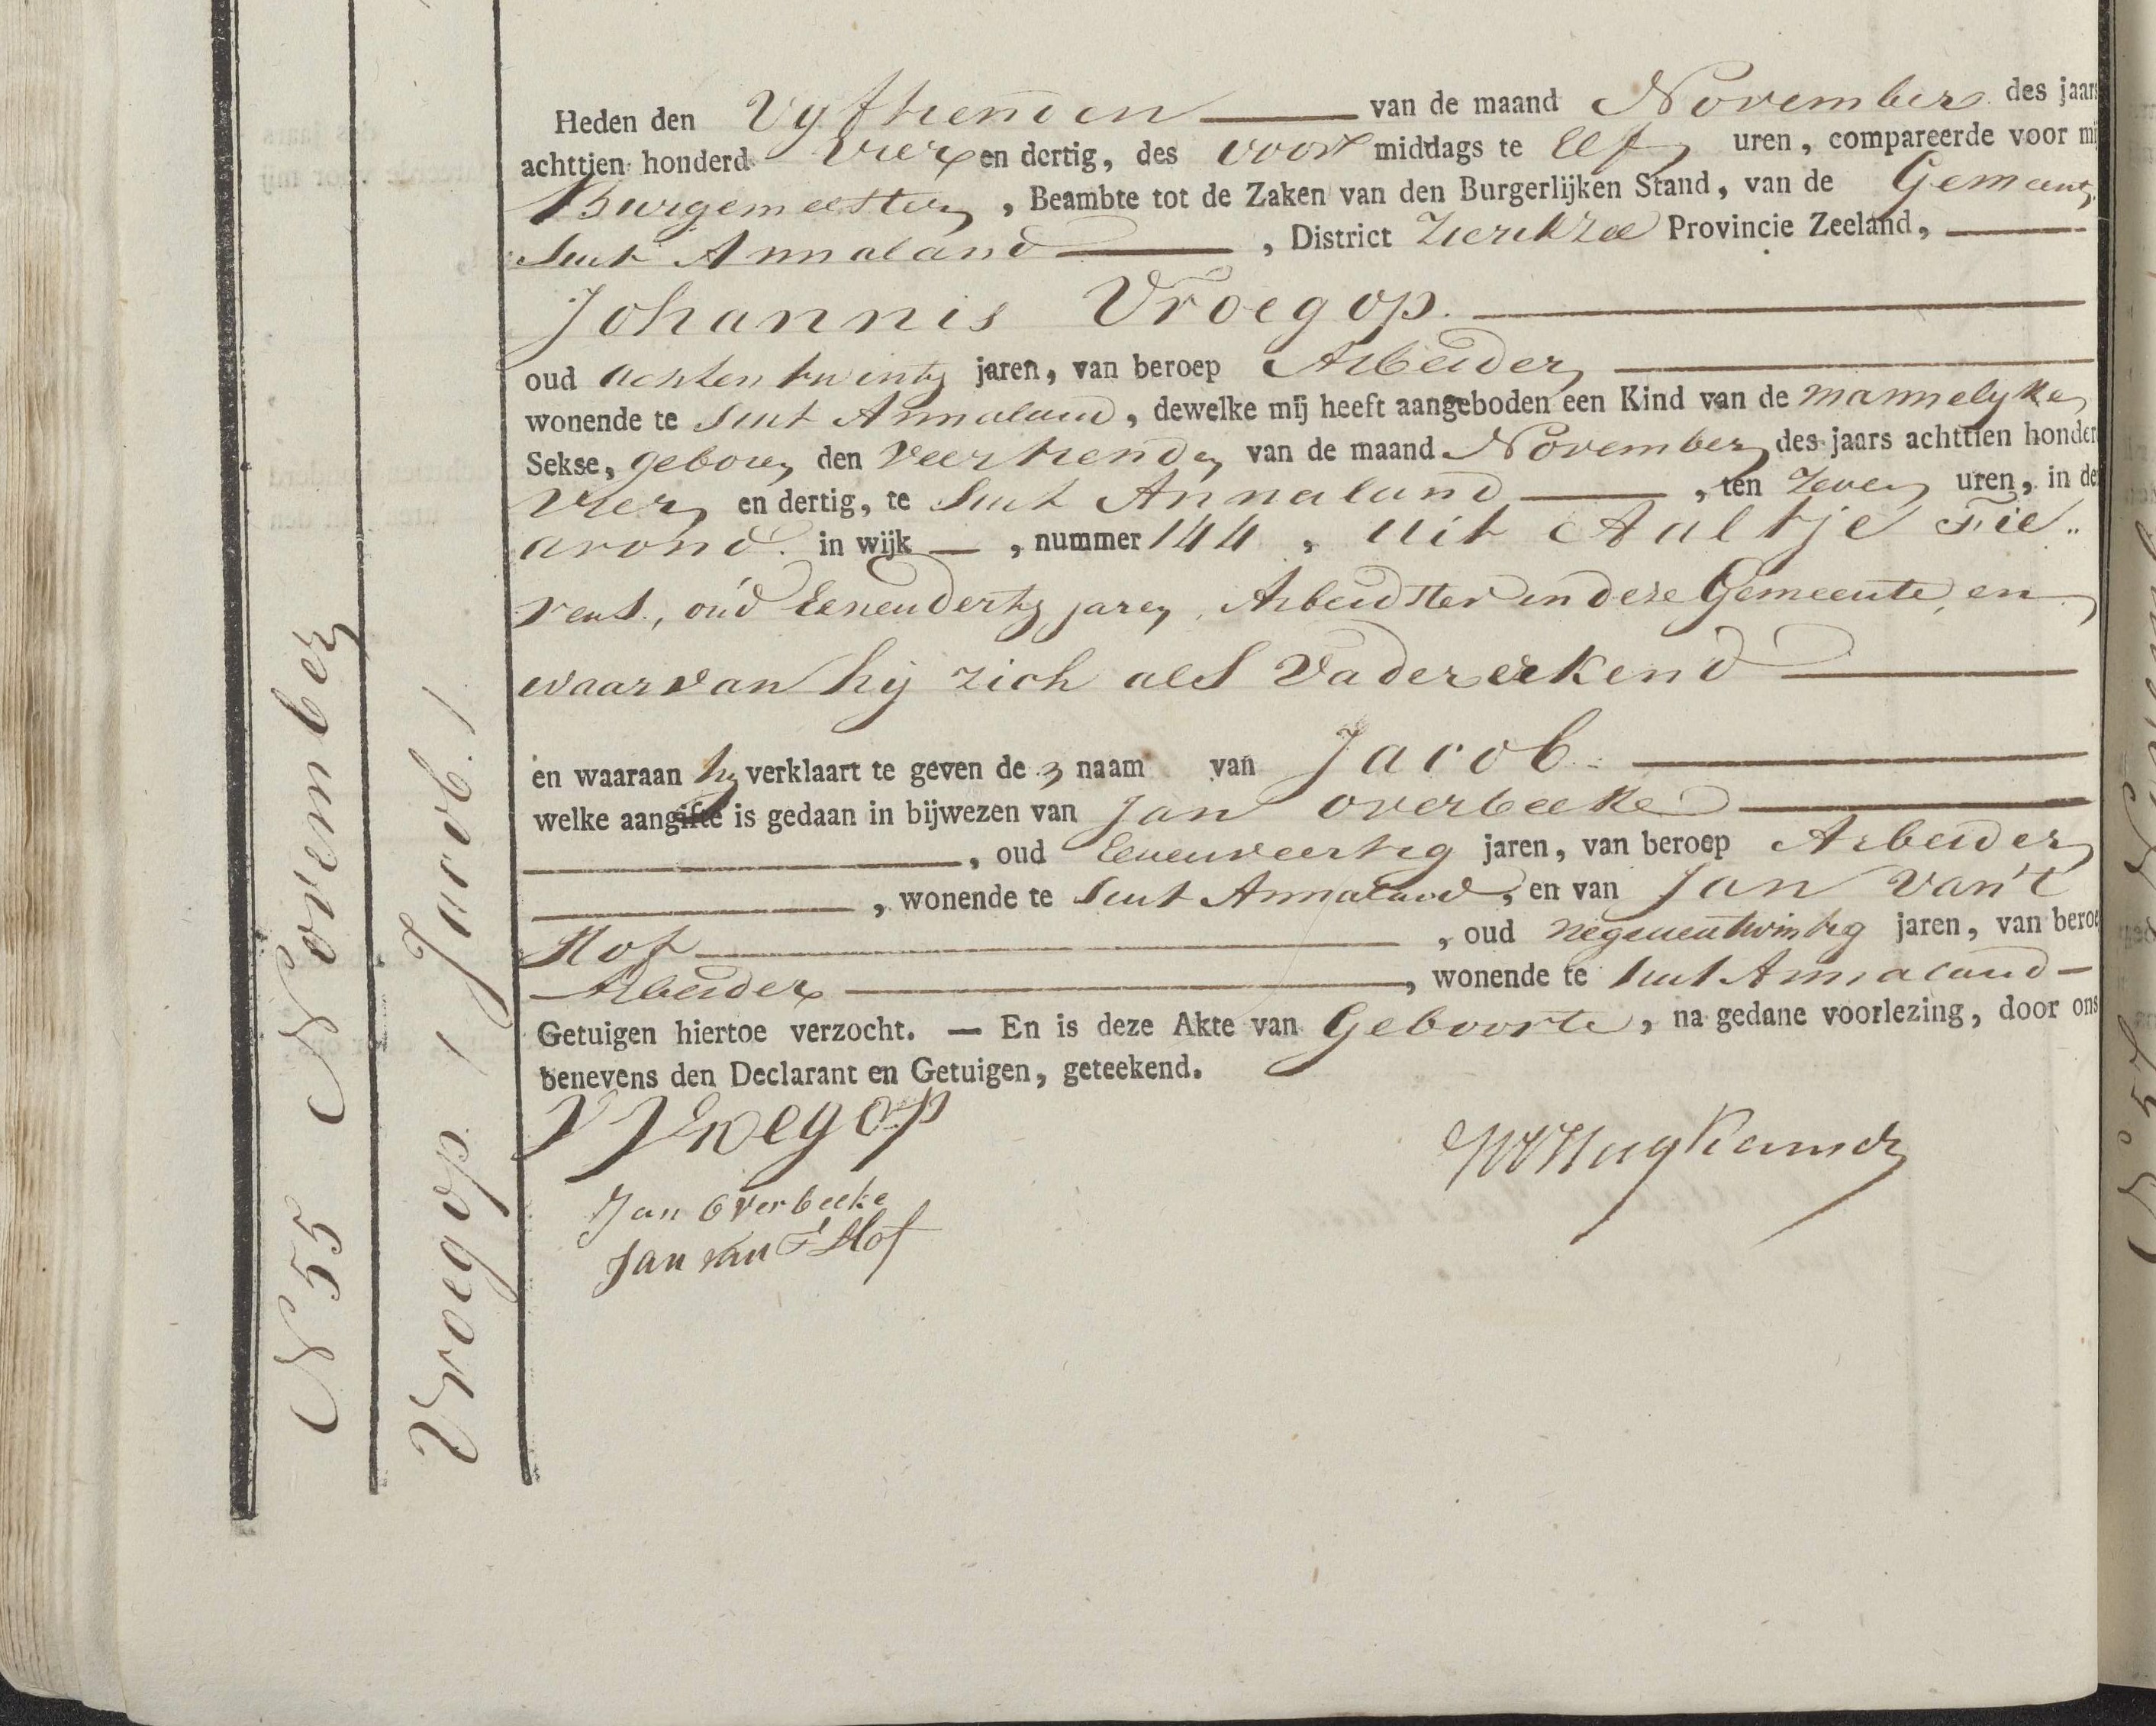 N 55 November
Vroegop / Jacob. /
Heden den Vyftienden van de maand November des jaars
achttien honderd vier en dertig, des voor middags te Elf uren, compareerde voor mij
Burgemeester, Beambte tot de Zaken van den Burgerlijken Stand, van de Gemeente
Sint Annaland, District Zierikzee Provincie Zeeland,
Johannis Vroegop.
oud achtentwintig jaren, van beroep Arbeider
wonende te Sint Annaland, dewelke mij heeft aangeboden een Kind van de mannelyke
Sekse, geboren den Veertienden van de maand November des jaars achttien honderd
vier en dertig, te Sint Annaland, ten zeven uren, in den
avond. in wijk —, nummer 144, uit Aaltje Fie„
rens., oud Eenendertig jaren, Arbeidster in deze Gemeente, en
waarvan hij zich als Vader erkend
en waaraan hy verklaart te geven de naam van Jacob.
welke aangifte is gedaan in bijwezen van Jan Overbeeke
, oud Eenenveertig jaren, van beroep Arbeider
, wonende te Sint Annaland, en van Jan van 't
Hof, oud negenentwintig jaren, van beroe
Arbeider, wonende te Sint Annaland
Getuigen hiertoe verzocht. — En is deze Akte van Geboorte, na gedane voorlezing, door ons
benevens den Declarant en Getuigen, geteekend.
Vroegop
Jan Overbeeke
Jan van 't Hof